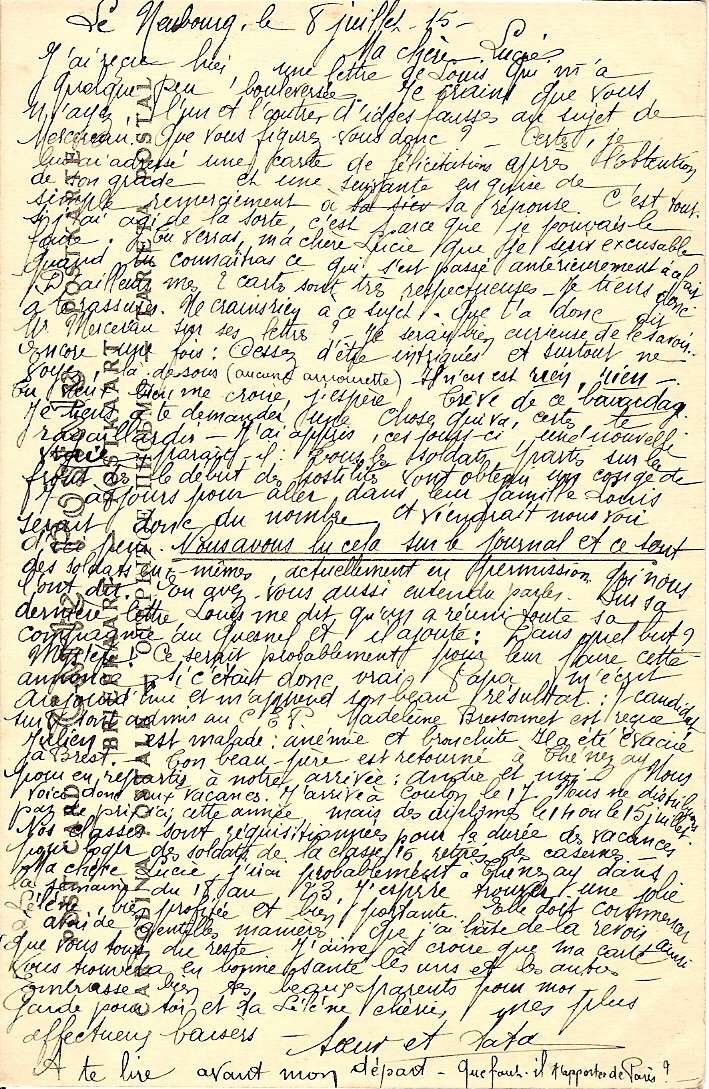 Le Neubourg, le 8 juillet - 15 -
Ma chère Lucie,
J'ai reçu hier une lettre de Louis qui m'a
quelque peu bouleversée. Je crains que vous
n'ayez l'un et l'autre d'idées fausses au sujet de
Mercereau. Que vous figurez-vous donc ? - Certes, je
lui ai adressé une carte de félicitations après l'obtention
de son grade et une suivante en guise de
simple remerciement à sa réponse. C'est tout.
Si j'ai agi de la sorte, c'est parce que je pouvais le
faire. Tu verras, ma chère Lucie que je suis excusable
quand tu connaîtras ce qui s'est passé antérieurement à ce fait
D'ailleurs mes 2 cartes sont très respectueuses - Je tiens donc
à te rassurer. Ne crains rien à ce sujet. Que t'a donc dit
Mr Mercereau sur ses lettres ? - Je serais bien curieuse de le savoir..
Encore une fois : Cessez d'être intrigués et surtout ne
voyez là-dessous (aucune amourette) Il n'en est rien, rien -.
Tu veux bien me croire, j'espère. Trêve de ce
Je tiens à te demander une chose qui va, certes, te
ragaillardir - J'ai appris, ces jours-ci, une nouvelle
vraie paraît-il : tous les soldats partis sur le
front dès le début des hostilités vont obtenir un congé de
jours pour aller dans leur famille Louis
serait donc du nombre et viendrait nous voir
d'ici peu. Nous avons lu cela sur le journal et ce sont
des soldats eux-mêmes, actuellement en permission qui nous
l'ont dit. En avez-vous aussi entendu parler. Dans sa
dernière lettre, Louis me dit qu'on a réuni toute sa
compagnie au Quesnel et il ajoute : Dans quel but ?
Mystère ! Ce serait probablement pour leur faire cette
annonce. Si c'était donc vrai Papa m'écrit
aujourd'hui et m'apprend son beau résultat : 7 candidats
sur admis au C.E.P. Madeleine Bressonnet est reçue
Julien est malade : anémie et bronchite Il a été évacué
à Brest. Ton beau-père est retourné à Thénezay
pour en repartir à notre arrivée : André et moi - Nous
voici donc aux vacances. J'arrive à Coulon le 17. Nous ne distribuons
pas de prix ici cette année, mais des diplômes le 14 ou le 15 juillet.
Nos classes sont réquisitionnées pour la durée des vacances
pour loger des soldats de la classe 16 retirés de caserne -
Ma chère Lucie j'irai probablement à Thénezay dans
la semaine du 18 au 23. J'espère trouver une jolie
Lélène, bien profitée et bien portante. Elle doit commencer
à avoir de gentilles manières. Que j'ai hâte de la revoir ainsi
que vous tous du reste. J'aime à croire que ma carte
vous trouvera en bonne santé les uns et les autres
Embrasse bien tes beaux-parents pour moi
Garde pour toi et ta Lélène chérie, mes plus
affectueux baisers -
Sœur et Tata
A te lire avant mon départ - Que faut-il t'apporter de Paris ?
POST CARD
POSTKARTE
BRIEFKAART
POSTKAART
CARTOLINA POSTALE
ПИСЬМО
TARJETA POSTAL